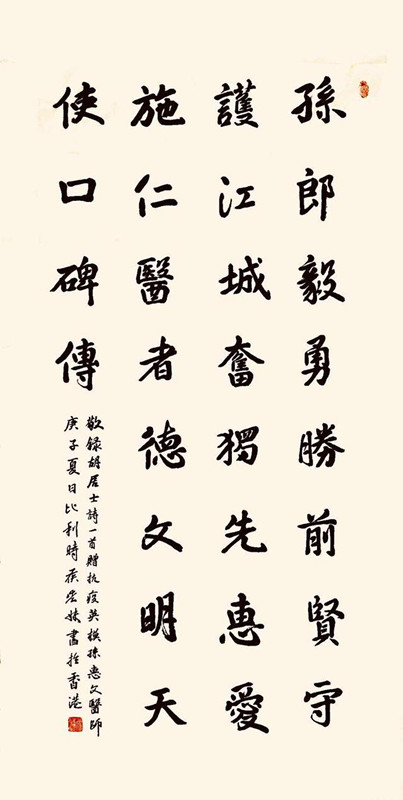 孫郎毅勇勝前賢守
護江城奮獨先惠愛
施仁醫者德文明天
使口碑傳
敬錄胡居士詩一首贈抗疫英模孫惠文醫師
庚子夏日比利時妹書於香港